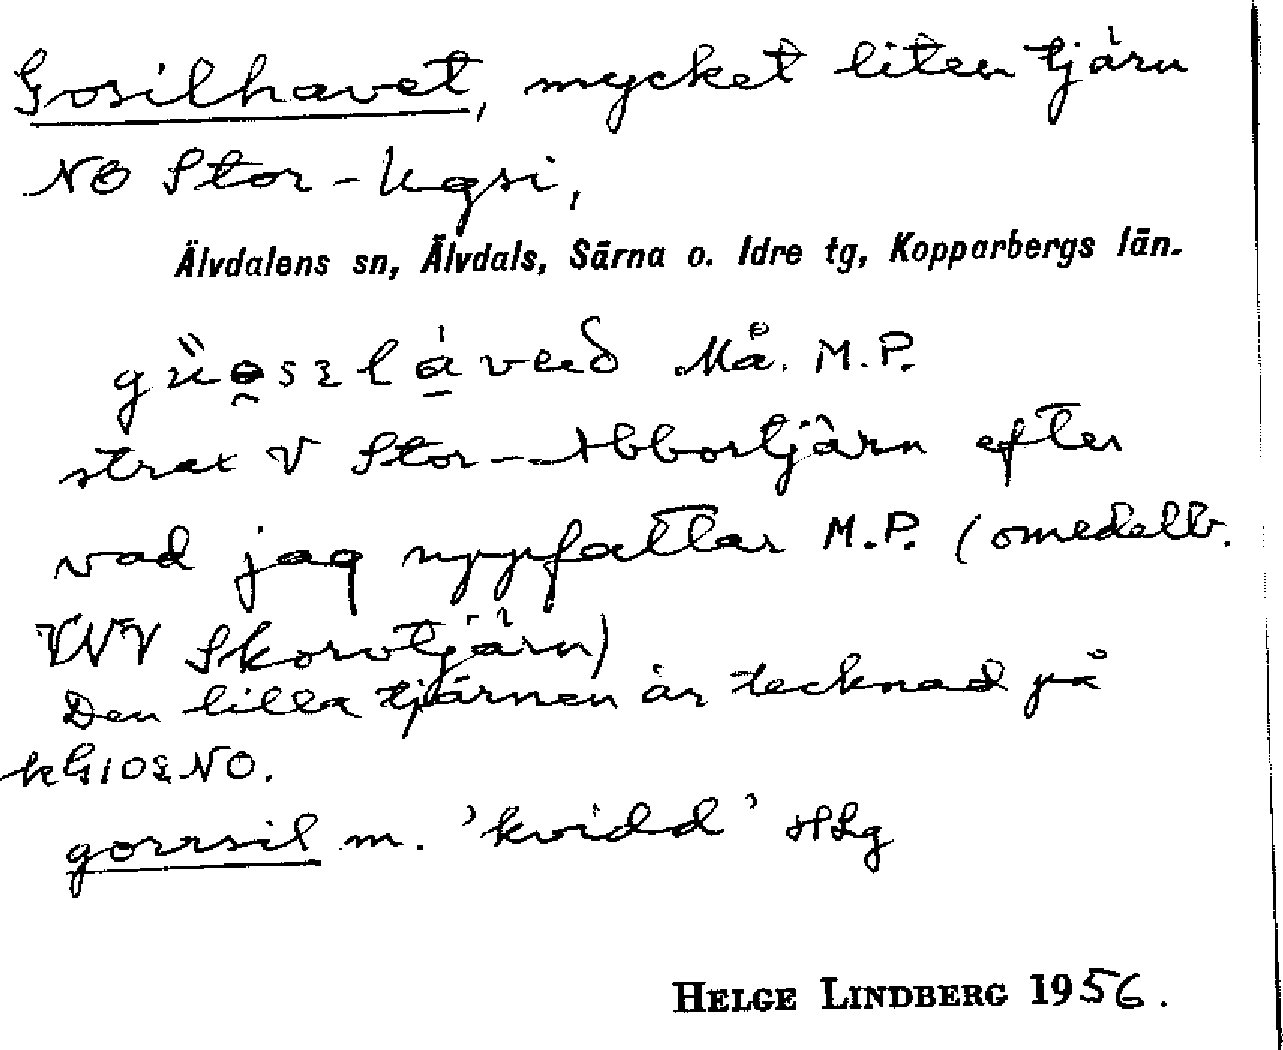 Gosilhavet, mycket liten tjärn
NO Stor-Ugsi,
Älvdalens sn, Älvdals, Särna o. Idre tg, Kopparbergs län.
Må. M.P.
strax V Stor-Abbortjärn efter
vad jag uppfattar M.P. (omedelb.
VNV Skorvtjärn)
Den lilla tjärnen är tecknad på
NO.
gorrsil m. 'kvidd' HLg
HELGE LINDBERG 1956.